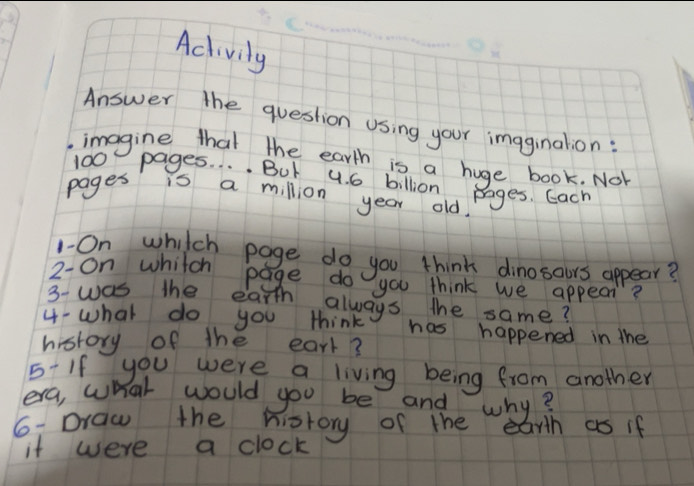 Activity
Answer the question using your imaggination:
. imagine that the earth is a huge book. Not
100 pages.... But 4.6 billion pages. Each
pages is a million year old.
1-On whitch page do you think dinosaurs appear?
2-On whitch page do you think we appear?
3-was the earth always the same?
4-what do you think has happened in the
history of the eart?
5-If you were a living being from another
era, what would you be and why?
6-Draw the history of the earth as if
it were a clock